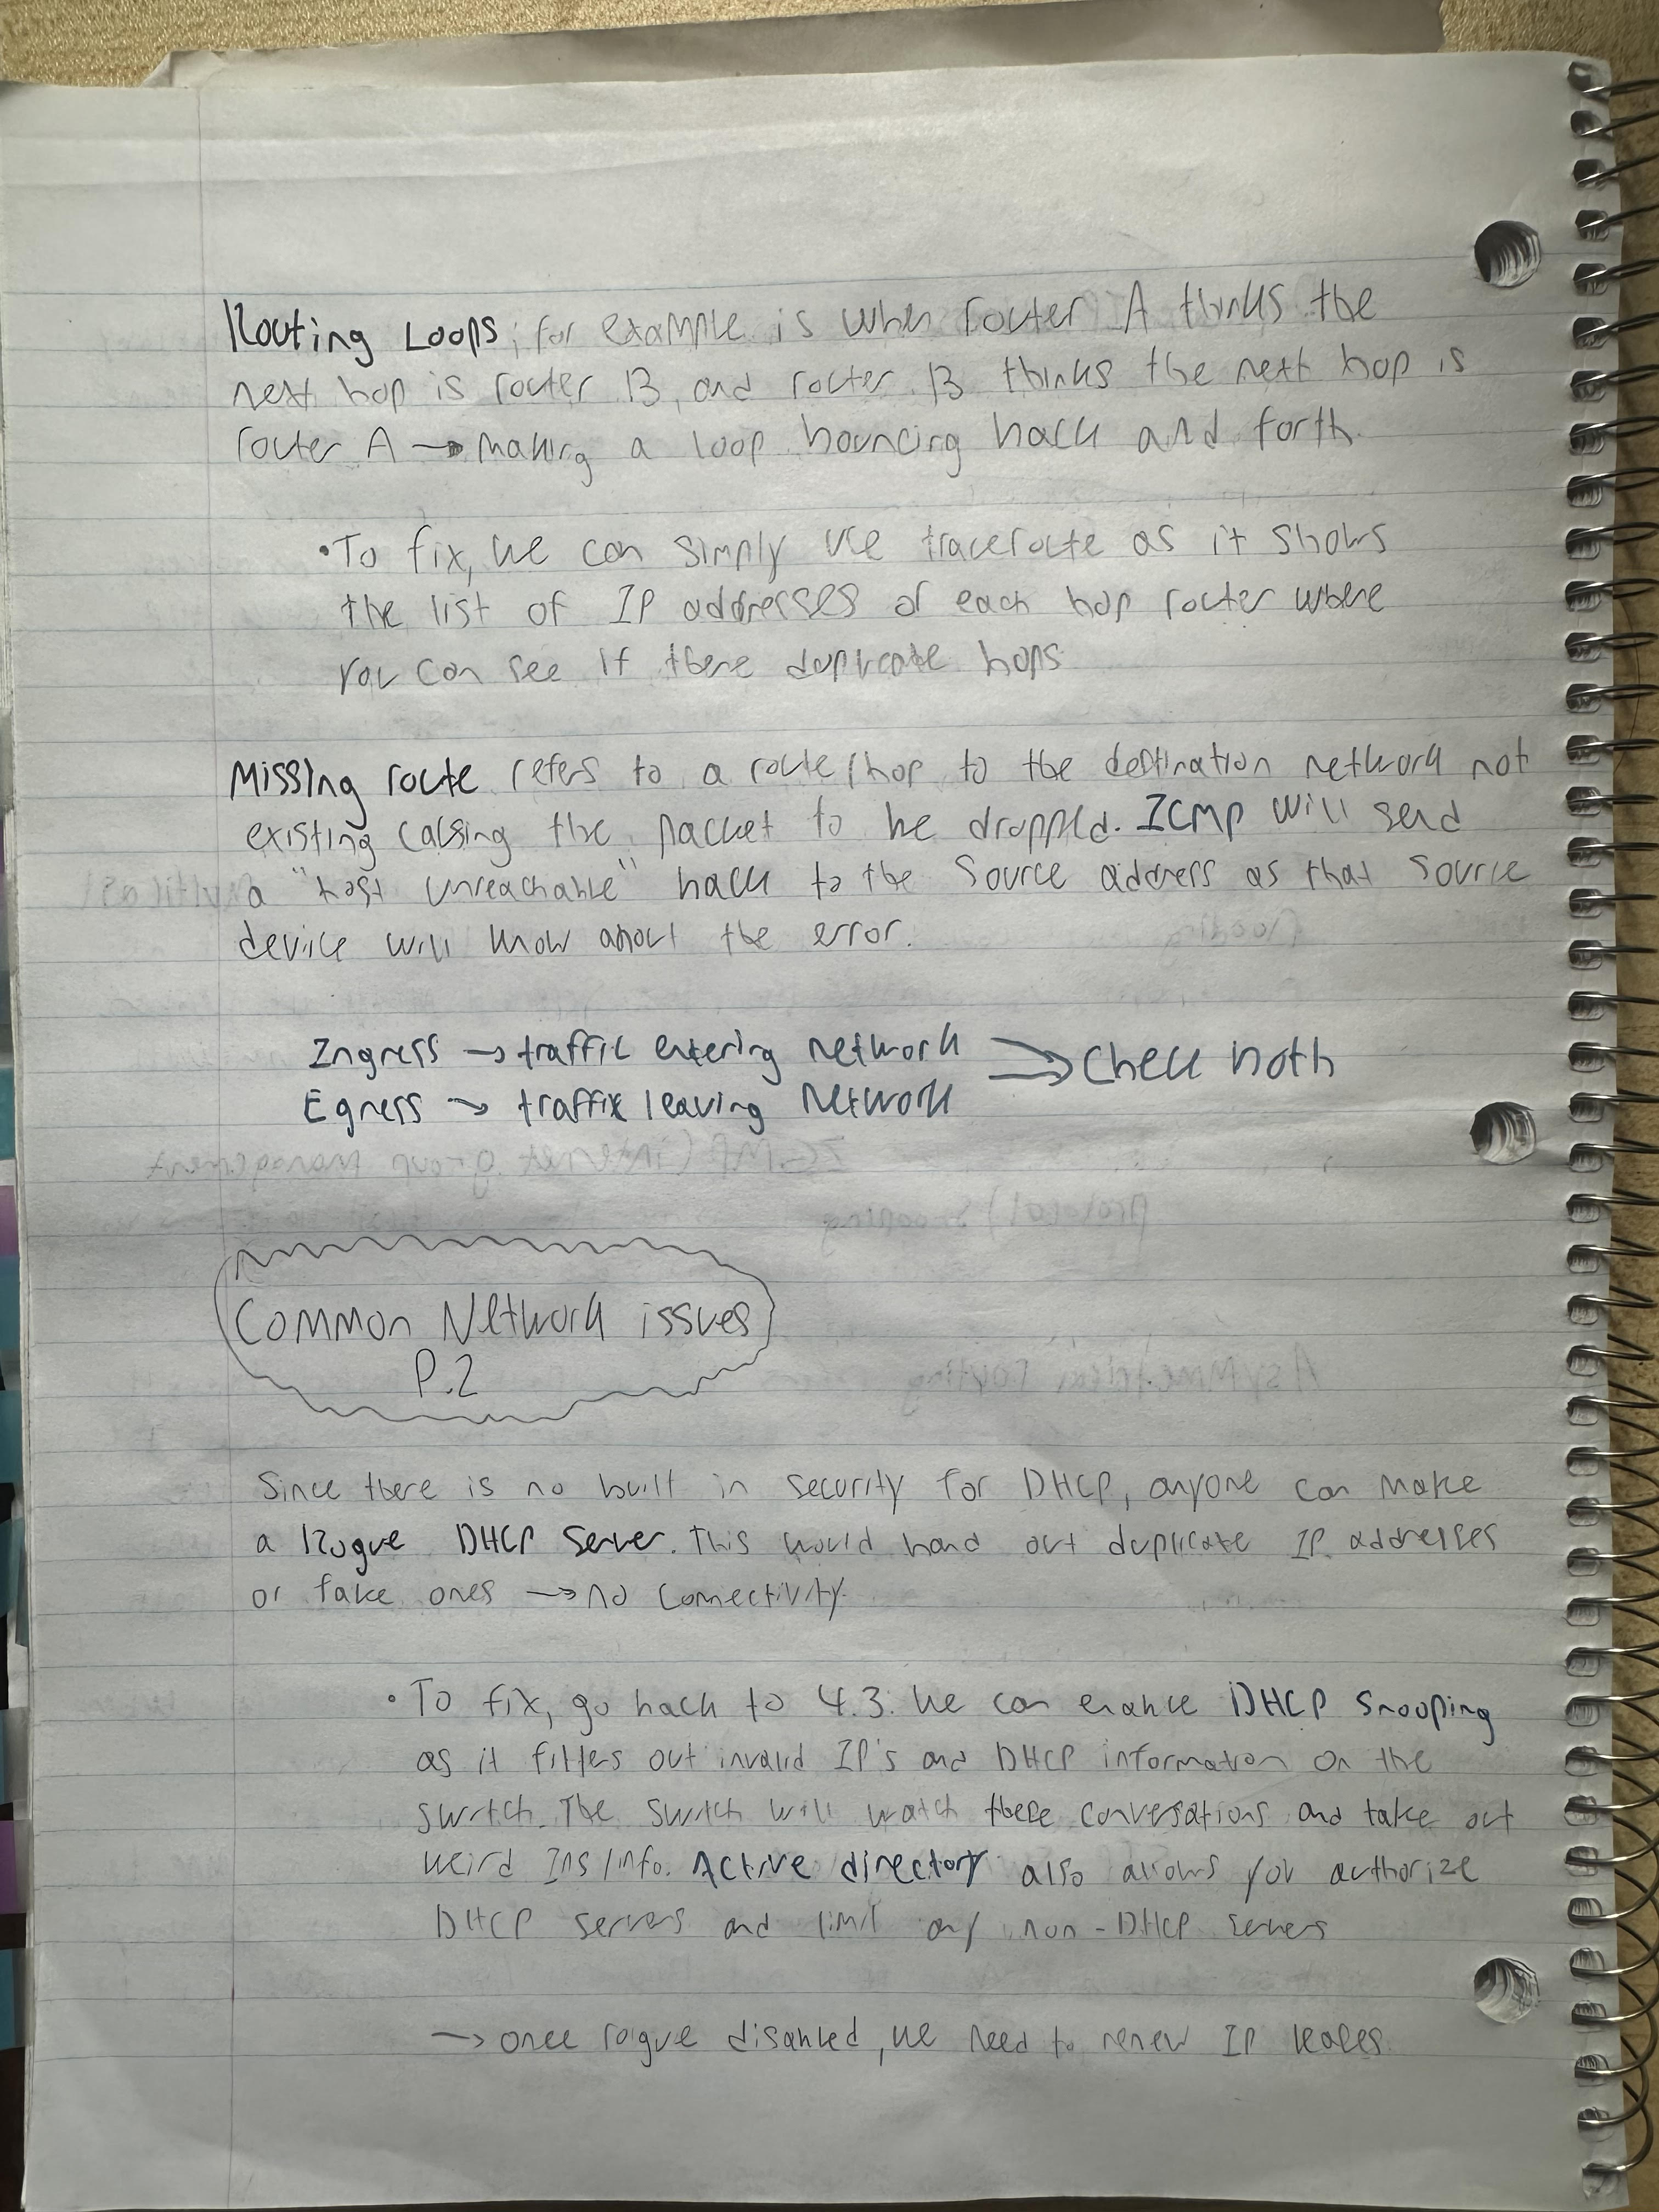 Routing Loops; for example is when router A thinks the
next hop is router B, and router B thinks the next hop is
router A → making a loop bouncing back and forth.
• To fix, we can simply use traceroute as it shows
the list of IP addresses of each hop router where
you can see if there duplicate hops
Missing route refers to a route/hop to the destination network not
existing causing the packet to be dropped. ICMP will send
a "host unreachable" back to the source address as that source
device will know about the error.
Ingress → traffic entering network ⇒ Check both
Egress → traffic leaving Network
Common Network issues
P.2
Since there is no built in security for DHCP, anyone can make
a Rogue DHCP Server. This would hand out duplicate IP addresses
or fake ones → no connectivity.
• To fix, go back to 4.3. We can enable DHCP Snooping
as it filters out invalid IP's and DHCP information on the
switch. The switch will watch these conversations and take out
weird /info. Active directory also allows you authorize
DHCP servers and limit any non-DHCP servers
→ once roigue disabled, we need to renew IP leases